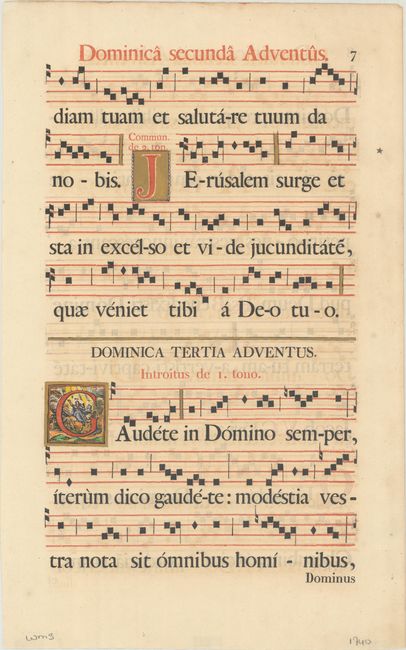 Dominicâ secundâ Adventûs. 7
diam tuam et salutá-re tuum da
Commun.
de 2. ton.
no - bis. JE-rúsalem surge et
sta in excél-so et vi-de jucunditátẽ,
quæ véniet tibi á De-o tu-o.
DOMINICA TERTIA ADVENTUS.
Introitus de 1. tono.
GAudéte in Dómino sem-per,
íterùm dico gaudé-te: modéstia ves-
tra nota sit ómnibus homí - nibus,
Dominus
1740